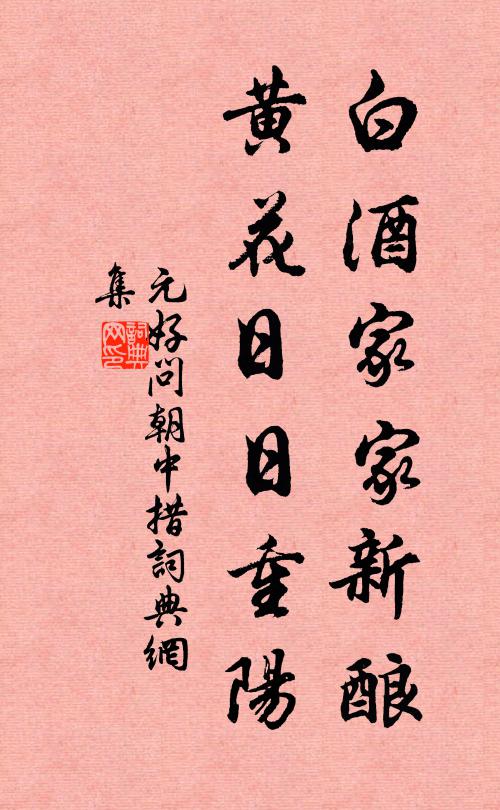 白酒家家新酿
黄花日日重陽
元好问朝中措詞典網
集
詞典
网印